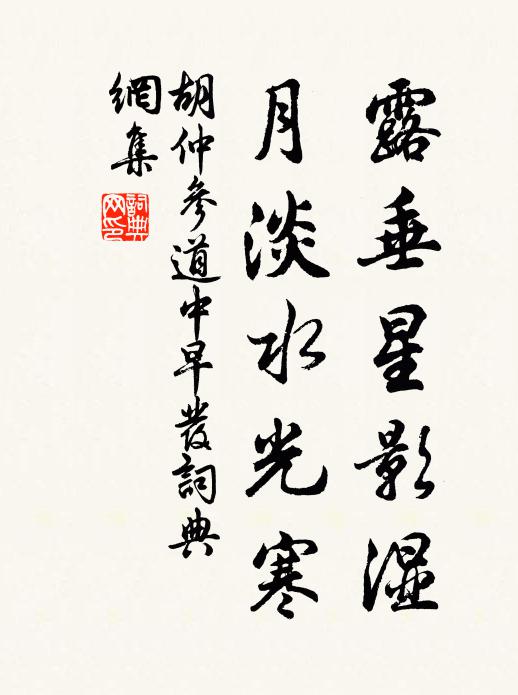 露垂星影湿
月淡水光寒
胡仲參道中早發詞典
網集
詞典
网印